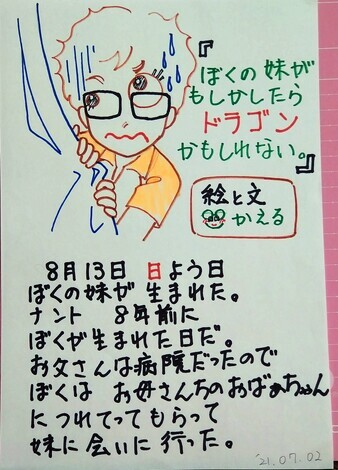 『ぼくの妹が
もしかしたら
ドラゴン
かもしれない。』
絵と文
かえる
8月13日 日よう日
ぼくの妹が 生まれた。
ナント 8年前に
ぼくが生まれた日だ。
お父さんは病院だったので
ぼくは お母さんちのおばぁちゃん
につれてってもらって
妹に会いに行った。
'21.07.02